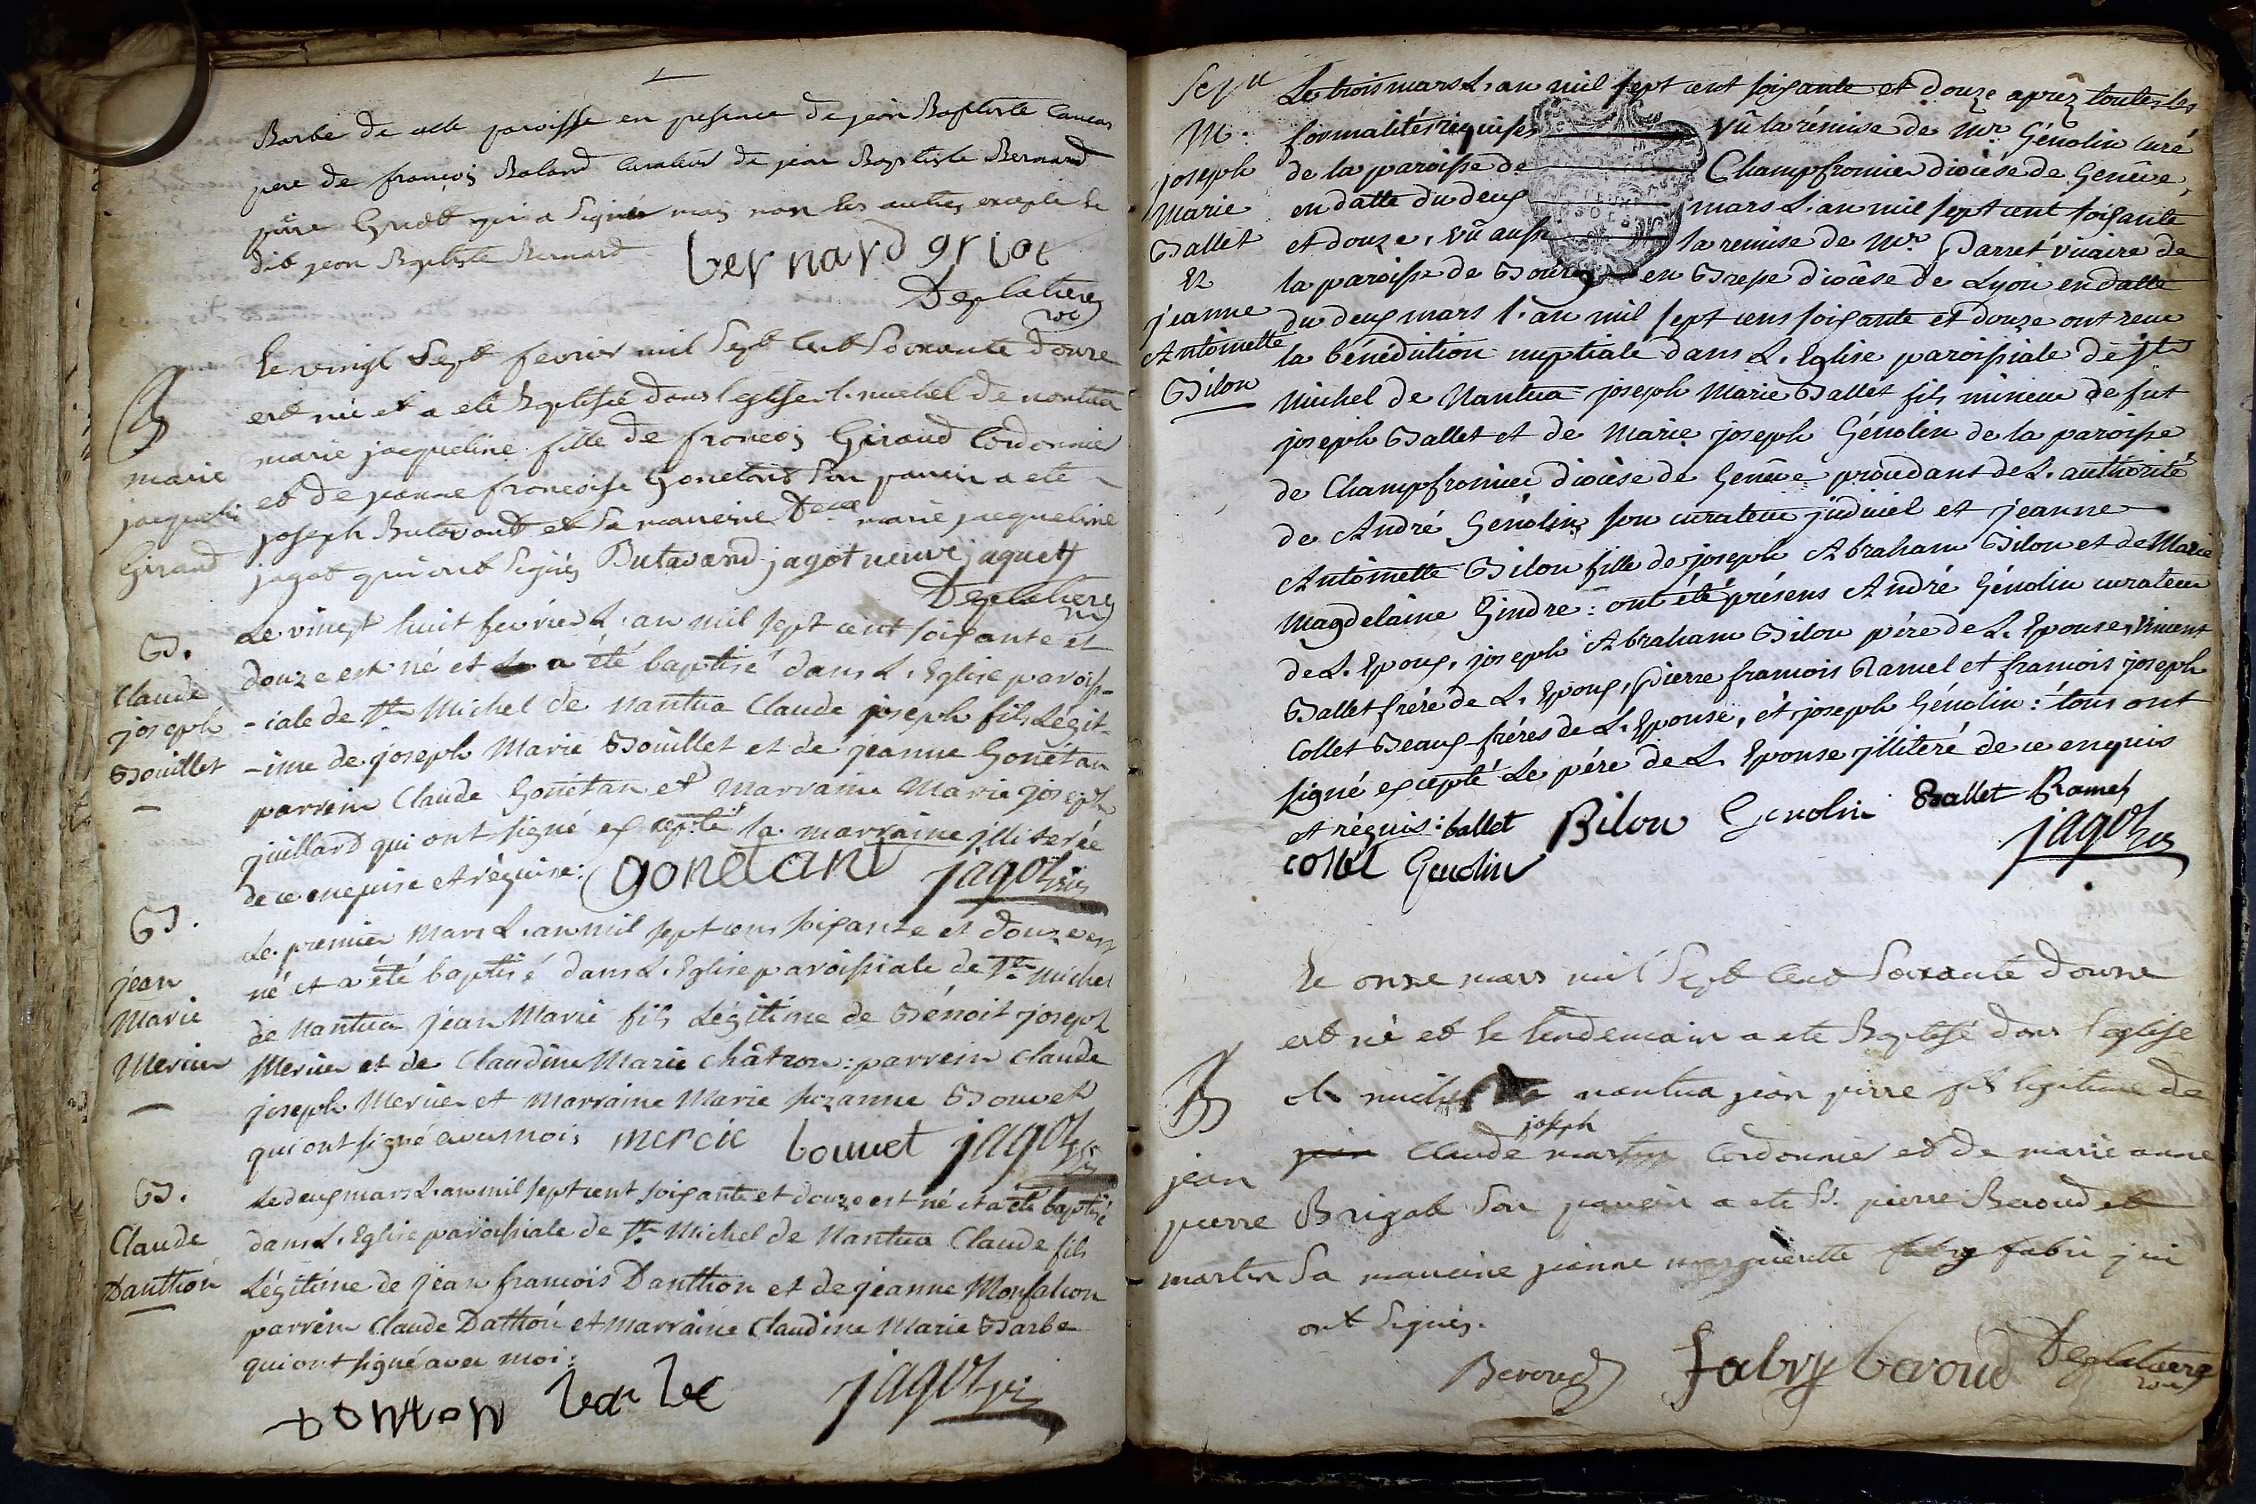 Barbe de cette paroisse en presence de jean Baptiste
pere de françois Roland curateur de jean Baptiste Bernard
pere Griot qui a signés mais non les autres excepte le
dit jean Baptiste Bernard
bernard griot
Deplatieres
vic
Le vingt Sept fevrier mil Sept Cent Soixante douze
est née et a ete Baptisée dans l'eglise st michel de nantua
marie jacqueline fille de françois Giraud Cordonnier
et de jeanne françoise Gonetant Son parrein a ete
joseph Butavand et Sa mareine Delle marie jacqueline
jagot qui ont Signés Butavand jagot neuve jaquett
Deplatieres
vic
B
marie
jacqueli
Giraud
Le vingt huit fevrier L'an mil sept cent soixante et
douze est né et a été baptisé dans L'Eglise parois-
-iale de St Michel de Nantua Claude joseph fils Légit-
-ime de joseph Marie Bouillet et de jeanne Gonétan
parrein Claude Gonétan et Marraine Marie joseph
juillard qui ont signé excepté la marraine illiterée
de ce enquise et réquise: gonetant jagot vic
B.
Claude
joseph
Bouillet
Le premier Mars L'an mil sept cens soixante et douze est
né et a été baptisé dans L'Eglise paroissiale de St Michel
de Nantua jean Marie fils Légitime de Bénoit joseph
Mercier et de Claudine Marie Châtron: parrein Claude
joseph Mercier et Marraine Marie suzanne Bouvet
qui ont signé avec moi; mercie bouvet jagot vic
B.
jean
Marie
Mercier
Le deux mars L'an mil sept cent soixante et douze est né et a été baptisé
dans L'Eglise paroissiale de St Michel de Nantua Claude fils
Légitime de jean francois Danthon et de jeanne Monfalcon
parrein Claude Dathon et marraine Claudine Marie Barbe
qui ont signé avec moi:
Donton barbe jagot vic
B.
Claude
Danthon
Le trois mars L'an mil sept cent soixante et douze après toutes les
formalités requises vû la rémise de Mr Génolin curé
de la paroisse de Champfromier diocèse de Genêve,
en datte du deux mars L'an mil sept cent soixante
et douze, vû aussi la remise de Mr Parret vicaire de
la paroisse de Bourg en Bresse diocèse de Lyon en datte
du deux mars l'an mil sept cens soixante et douze ont reçu
la bénédiction nuptiale dans L'Eglise paroissiale de st
Michel de Nantua joseph Marie Ballet fils mineur de fut
joseph Ballet et de Marie joseph Génolin de la paroisse
de Champfromier diocèse de Genêve procédant de L'authorité
de André Génolin son curateur judiciel et jeanne
Antoinette Bilon fille de joseph Abraham Bilon et de Marie
Magdelaine Gindre: ont été présens André Génolin curateur
de L'Epoux, joseph Abraham Bilon père de L'Epouse, Vincent
Ballet frére de L'Epoux, pierre francois Ramel et francois joseph
Collet Beaux-fréres de L'Epouse, et joseph Génolin: tous ont
signé excepté Le pére de L'Epouse illiteré de ce enquis
et réquis: ballet Bilon Genolin Ballet Ramel
collet Genolin jagot vic
M.
joseph
Marie
Ballet
Et
jeanne
Antoinette
Bilon
Le onze mars mil Sept Cent Soixante douze
est né et le lendemain a ete Baptisé dans l'eglise
st michel de nantua jean pierre fils legitime de
joseph
jean Claude martin Cordonnier et de marie anne
Brigal Son parrein a ete Sr pierre Beroud et
Sa mareine jeanne marguerite fabry fabri qui
ont Signés.
Beroud fabry beroud Deplatieres
vic
B
jean
pierre
martin